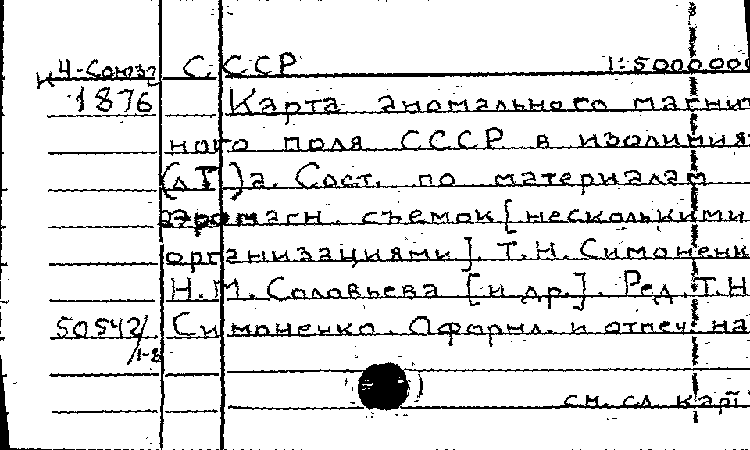 Ч-Союз СССР 1:5000000
К 1876 Карта аномального магнит
ного поля СССР в изолиниях
(ΔТ)а. Сост. по материалам
аэромагн. съемок [несколькими
организациями]. Т.Н. Симоненк
Н.М. Соловьева [и др.]. Ред. Т.Н
50542/1-8 Симоненко. Оформл. и отпеч. на
см. сл. карт